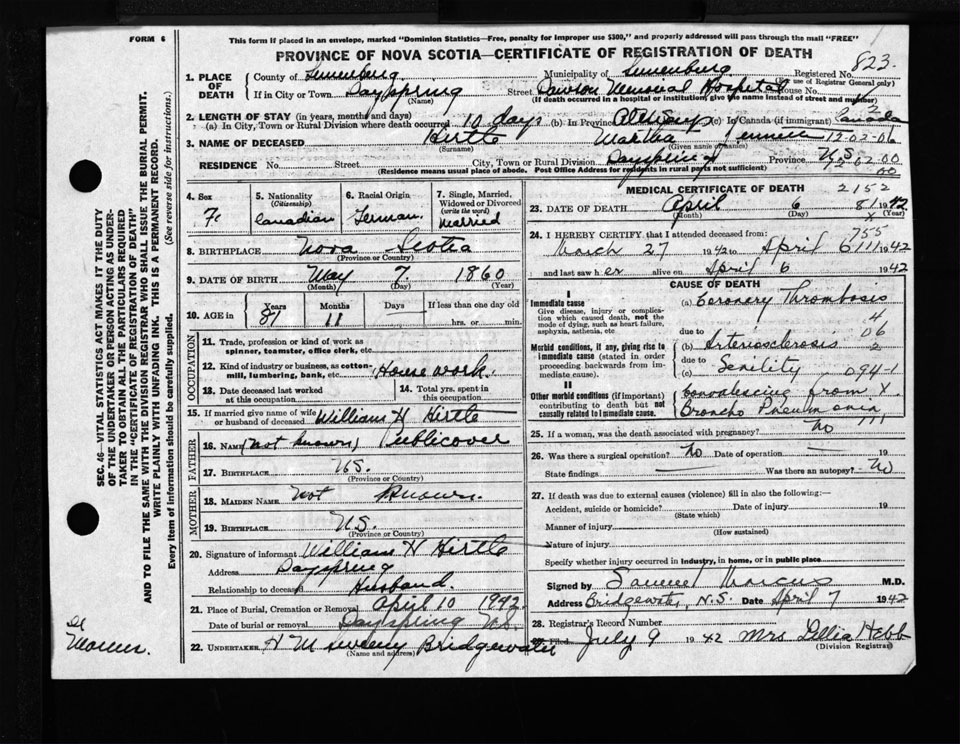 FORM 6
This form if placed in an envelope, marked "Dominion Statistics—Free, penalty for improper use $300," and properly addressed will pass through the mail "FREE"
PROVINCE OF NOVA SCOTIA—CERTIFICATE OF REGISTRATION OF DEATH
823
1. PLACE OF DEATH County of Lunenburg Municipality of Lunenburg Registered No. (For use of Registrar General only)
If in City or Town Dayspring (Name) Street Dawson Memorial Hospital House No.
(If death occurred in a hospital or institution, give the name instead of street and number)
2. LENGTH OF STAY (in years, months and days)
(a) In City, Town or Rural Division where death occurred 10 days (b) In Province Always (c) In Canada (if immigrant) Canada
3. NAME OF DECEASED Hirtle (Surname) Martha (Given name or names) 12-02-06
RESIDENCE No. Street City, Town or Rural Division Dayspring Province N.S.
(Residence means usual place of abode. Post Office Address for residents in rural parts not sufficient)
4. Sex F.
5. Nationality (Citizenship) Canadian
6. Racial Origin German
7. Single, Married, Widowed or Divorced (write the word) Married
8. BIRTHPLACE Nova Scotia (Province or Country)
9. DATE OF BIRTH May (Month) 7. (Day) 1860 (Year)
10. AGE in Years 81 Months 11 Days — If less than one day old hrs. or min.
OCCUPATION
11. Trade, profession or kind of work as spinner, teamster, office clerk, etc.
12. Kind of industry or business, as cotton-mill, lumbering, bank, etc. Housework.
13. Date deceased last worked at this occupation
14. Total yrs. spent in this occupation
15. If married give name of wife or husband of deceased William H Hirtle
FATHER
16. NAME (Not Known) Publicover
17. BIRTHPLACE N.S. (Province or Country)
MOTHER
18. MAIDEN NAME Not Known.
19. BIRTHPLACE N.S. (Province or Country)
20. Signature of informant William H Hirtle
Address Dayspring
Relationship to deceased Husband.
21. Place of Burial, Cremation or Removal April 10 1942
Date of burial or removal Dayspring N.S.
22. UNDERTAKER Bridgewater (Name and address)
MEDICAL CERTIFICATE OF DEATH 2152
23. DATE OF DEATH April (Month) 6 (Day) 1942 (Year)
24. I HEREBY CERTIFY that I attended deceased from: 755
March 27 1942 to April 6 1942
and last saw her alive on April 6 1942
CAUSE OF DEATH
I
Immediate cause
Give disease, injury or complication which caused death, not the mode of dying, such as heart failure, asphyxia, asthenia, etc
(a) Coronary Thrombosis
due to
Morbid conditions, if any, giving rise to immediate cause (stated in order proceeding backwards from immediate cause).
(b) Arteriosclerosis
due to
(c) Senility 094-1
II
Other morbid conditions (if important) contributing to death but not causally related to immediate cause.
Convalescing from
Broncho Pneumonia
25. If a woman, was the death associated with pregnancy? No
26. Was there a surgical operation? No Date of operation — 19
State findings — Was there an autopsy? No
27. If death was due to external causes (violence) fill in also the following:—
Accident, suicide or homicide? (State which) Date of injury 19
Manner of injury (How sustained)
Nature of injury
Specify whether injury occurred in industry, in home, or in public place
Signed by Samuel Marcus M.D.
Address Bridgewater, N.S. Date April 7 1942
28. Registrar's Record Number
Filed July 9 1942 Mrs Hebb (Division Registrar)
SEC. 46—VITAL STATISTICS ACT MAKES IT THE DUTY
OF THE UNDERTAKER OR PERSON ACTING AS UNDER-
TAKER TO OBTAIN ALL THE PARTICULARS REQUIRED
IN THE "CERTIFICATE OF REGISTRATION OF DEATH"
AND TO FILE THE SAME WITH THE DIVISION REGISTRAR WHO SHALL ISSUE THE BURIAL PERMIT.
WRITE PLAINLY WITH UNFADING INK. THIS IS A PERMANENT RECORD.
Every item of information should be carefully supplied. (See reverse side for instructions.)